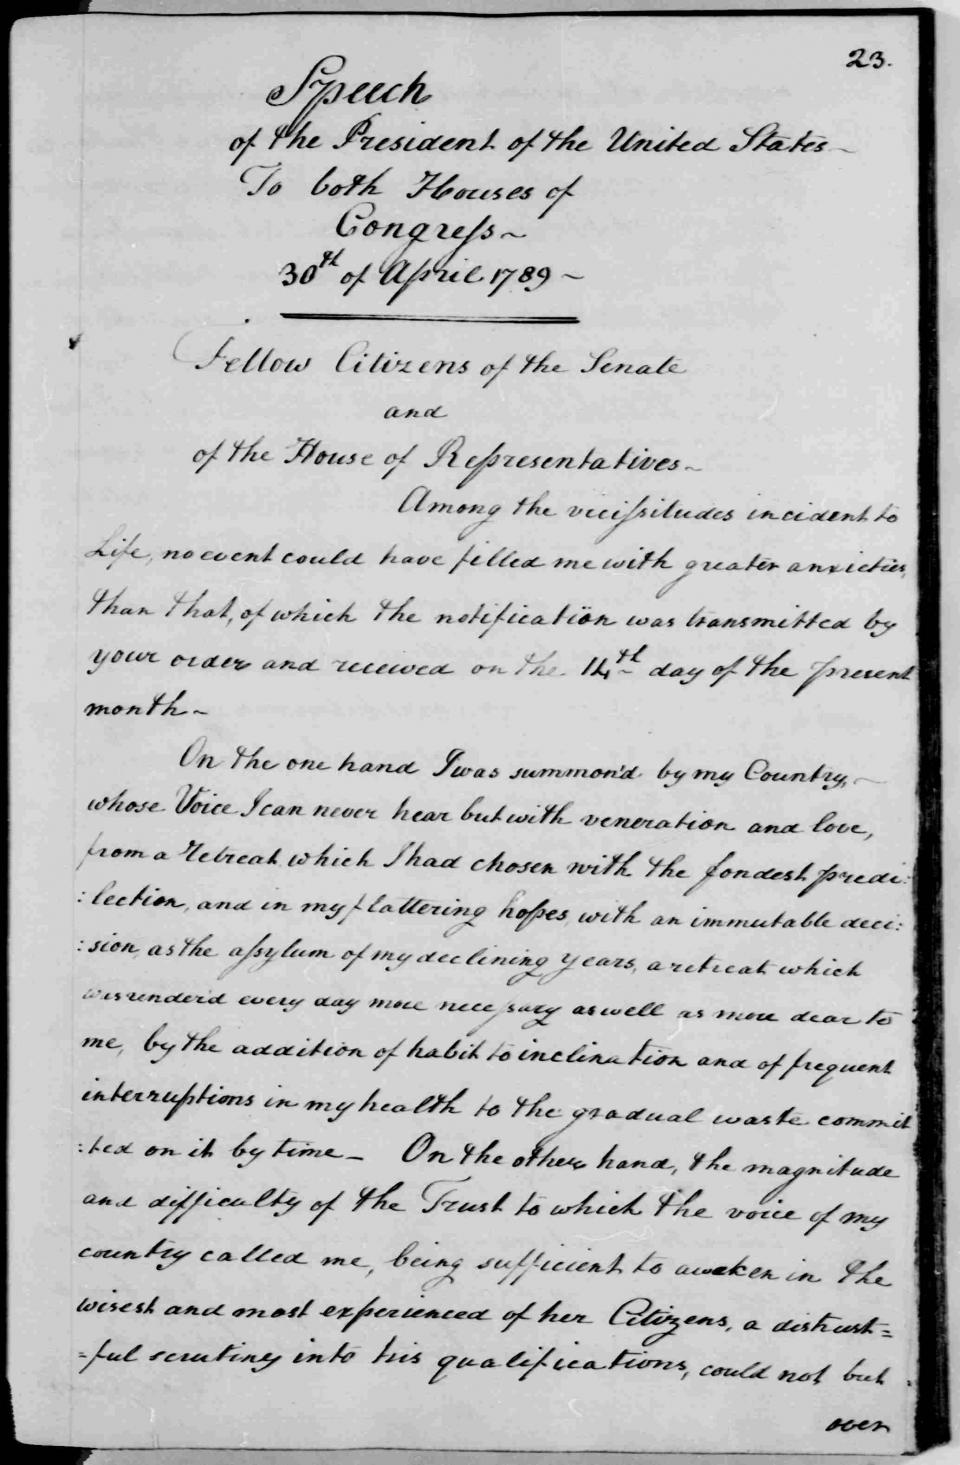 23.
Speech
of the President of the United States ~
To both Houses of
Congreſs ~
30th of April 1789 ~
Fellow Citizens of the Senate
and
of the House of Repſresentatives ~
Among the viciſsitudes incident to
Life, no event could have filled me with greater anxieties,
than that, of which the notification was transmitted by
your order and received on the 14th day of the present
month ~
On the one hand I was summon'd by my Country, ~
whose Voice I can never hear but with veneration and love,
from a retreat which I had chosen with the fondest predi:
:lection, and in my flattering hopes, with an immutable deci:
:sion, as the aſsylum of my declining years, a retreat which
was render'd every day more neceſsary as well as more dear to
me, by the addition of habit to inclination and of frequent
interruptions in my health to the gradual waste commit
:ted on it by time – On the other hand, the magnitude
and difficulty of the Trust to which the voice of my
country called me, being sufficient to awaken in the
wisest and most experienced of her Citizens, a distrust=
=ful scrutiny into his qualifications, could not but
over